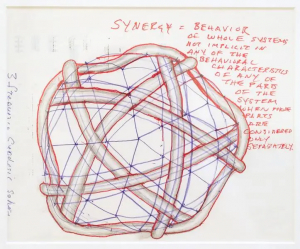 SYNERGY = BEHAVIOR
OF WHOLE SYSTEMS
NOT IMPLICIT IN
ANY OF THE
BEHAVIORAL
CHARACTERISTICS
OF ANY OF
THE PARTS
OF THE
SYSTEM
WHEN
PARTS
ARE
CONSIDERED
ONLY
SEPARATELY.
3